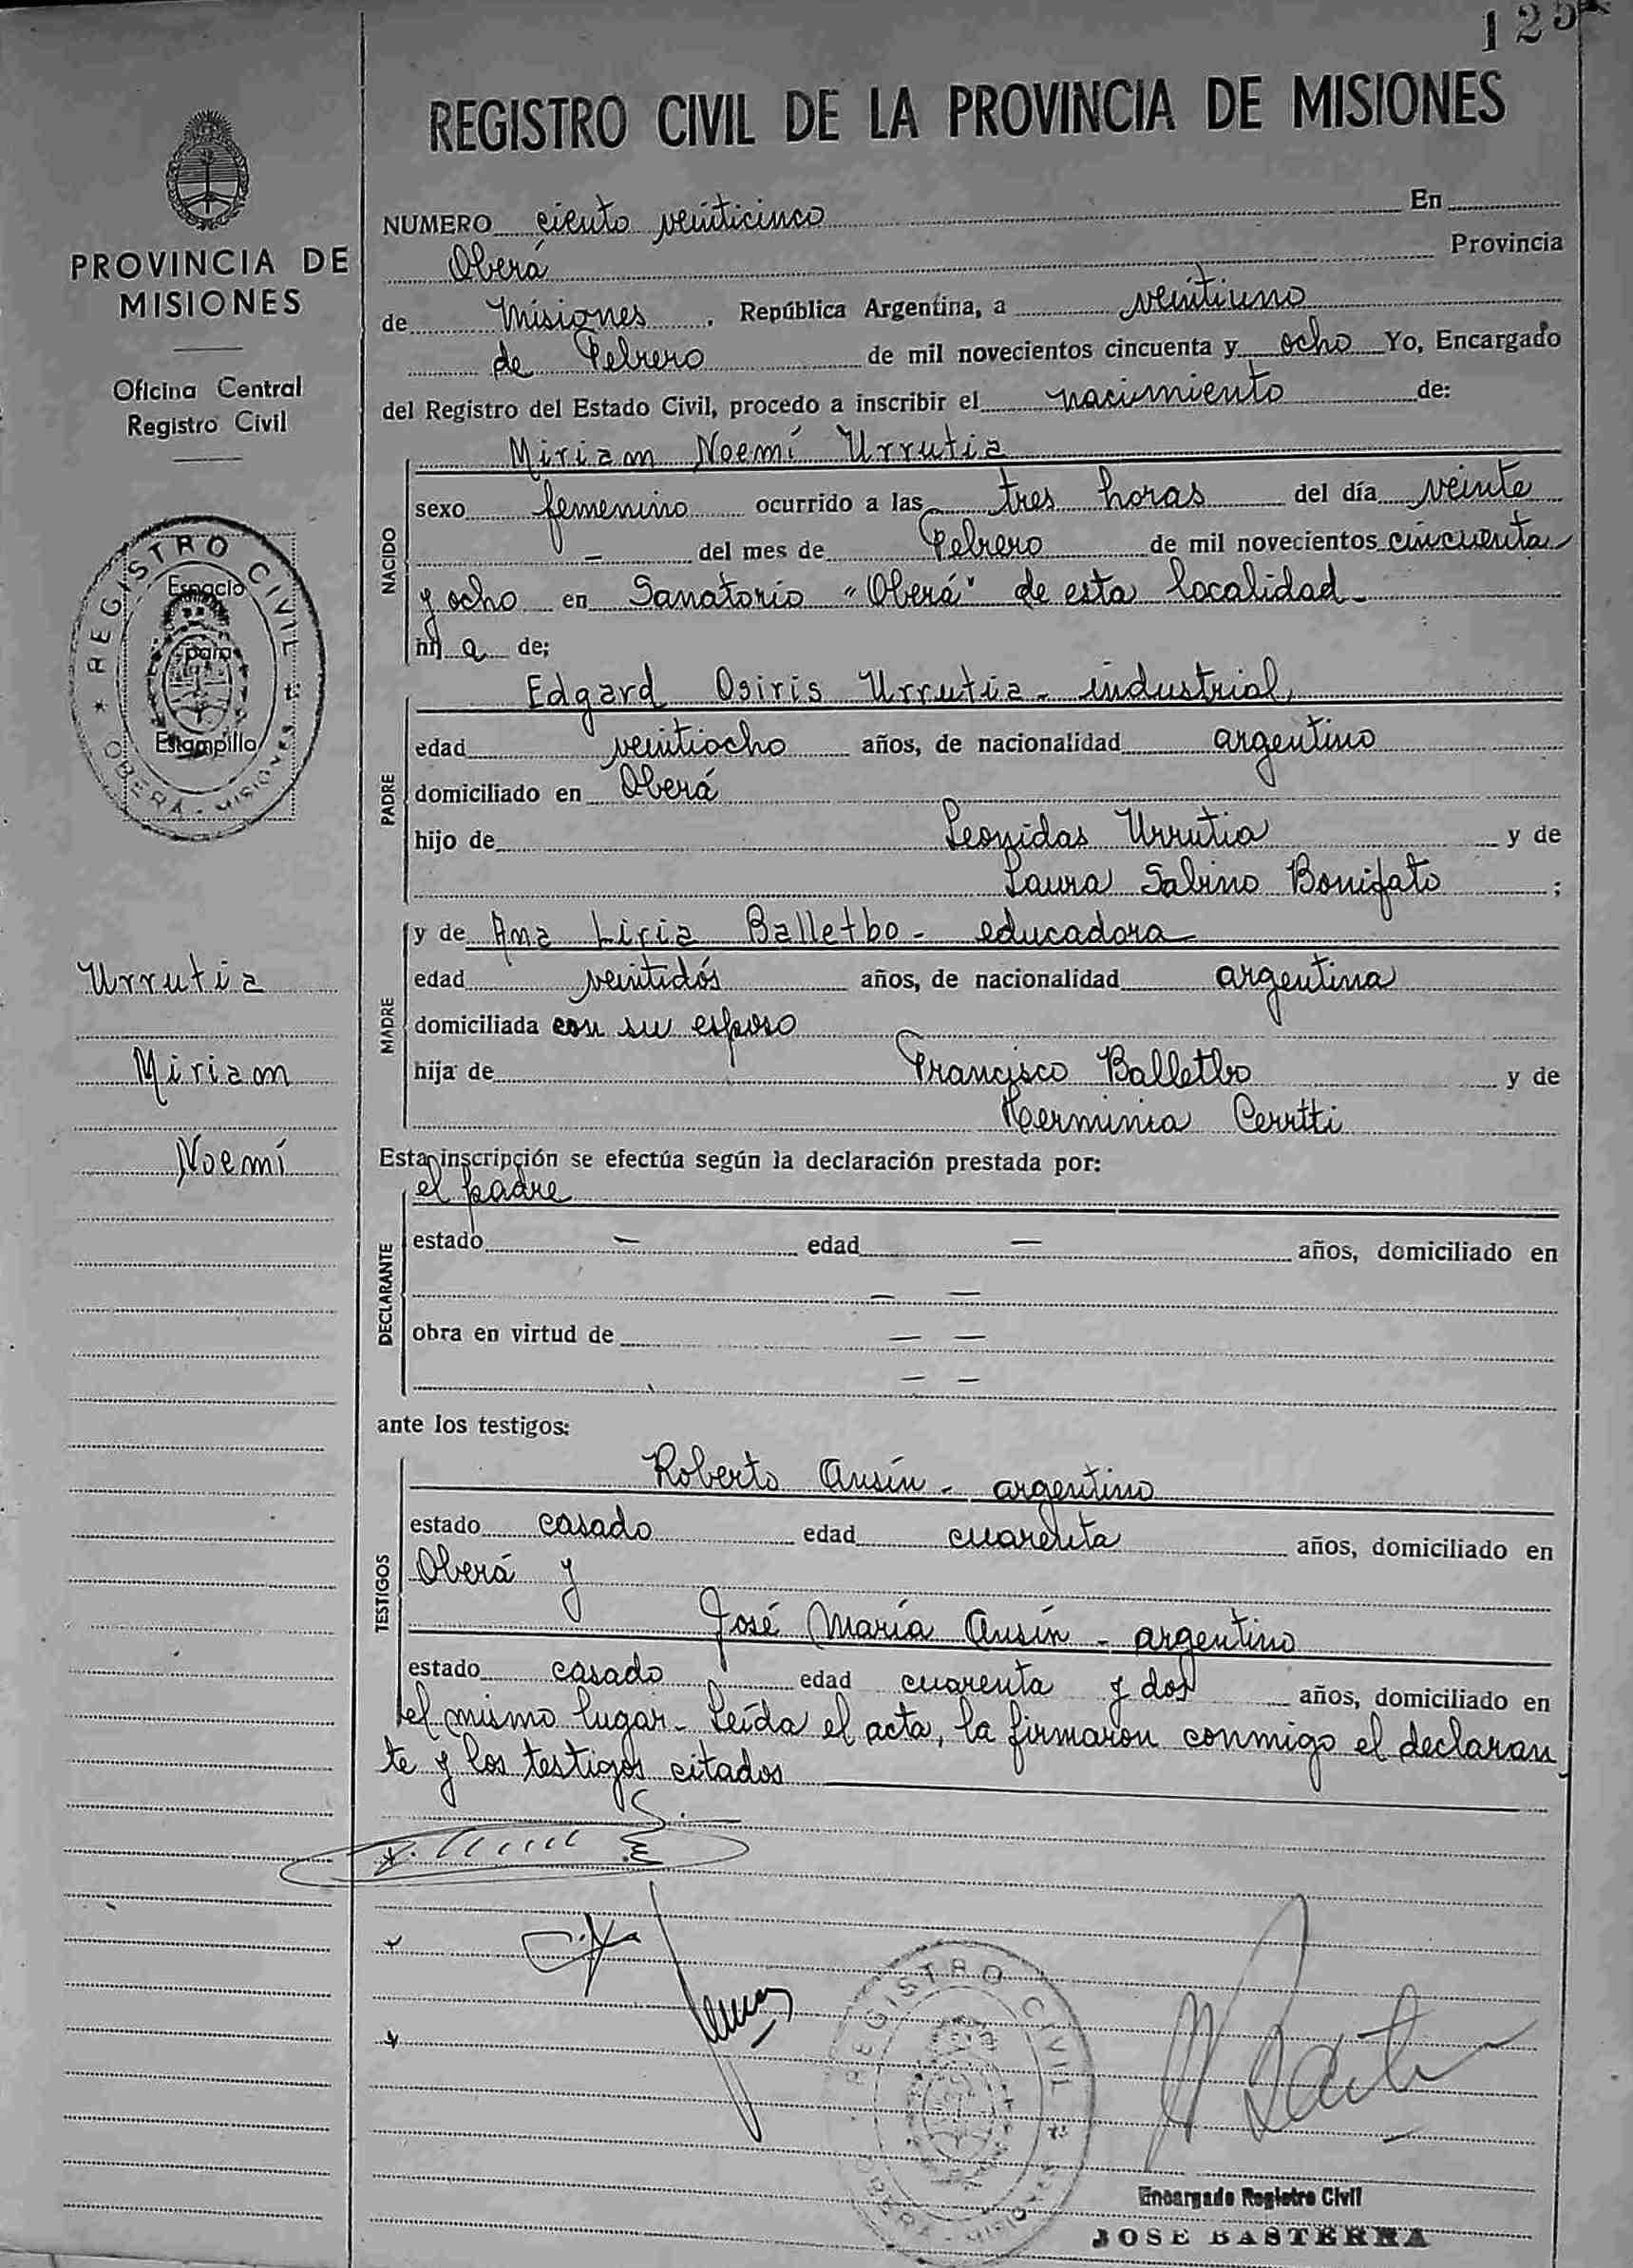 125
REGISTRO CIVIL DE LA PROVINCIA DE MISIONES
PROVINCIA DE
MISIONES
Oficina Central
Registro Civil
REGISTRO CIVIL
Espacio
para
Estampilla
* OBERÁ - MISIONES *
Urrutia
Miriam
Noemí
NUMERO ciento veinticinco En
Oberá Provincia
de Misiones, República Argentina, a veintiuno
de Febrero de mil novecientos cincuenta y ocho Yo, Encargado
del Registro del Estado Civil, procedo a inscribir el nacimiento de:
NACIDO
Miriam Noemí Urrutia
sexo femenino ocurrido a las tres horas del día veinte
— del mes de Febrero de mil novecientos cincuenta
y ocho en Sanatorio "Oberá" de esta localidad -
hij a de;
PADRE
Edgard Osiris Urrutia - industrial
edad veintiocho años, de nacionalidad argentino
domiciliado en Oberá
hijo de Leonidas Urrutia y de
Laura Sabino Bonifato ;
MADRE
y de Ana Liria Balletbo - educadora
edad veintidós años, de nacionalidad argentina
domiciliada con su esposo
hija de Francisco Balletbo y de
Herminia Cerutti
Esta inscripción se efectúa según la declaración prestada por:
DECLARANTE
el padre
estado — edad — años, domiciliado en
— —
obra en virtud de — —
— —
ante los testigos:
TESTIGOS
Roberto Ausín - argentino
estado casado edad cuarenta años, domiciliado en
Oberá y
José María Ausín - argentino
estado casado edad cuarenta y dos años, domiciliado en
el mismo lugar - Leída el acta, la firmaron conmigo el declaran
te y los testigos citados
REGISTRO CIVIL
OBERÁ - MISIONES
Encargado Registro Civil
JOSE BASTERRA